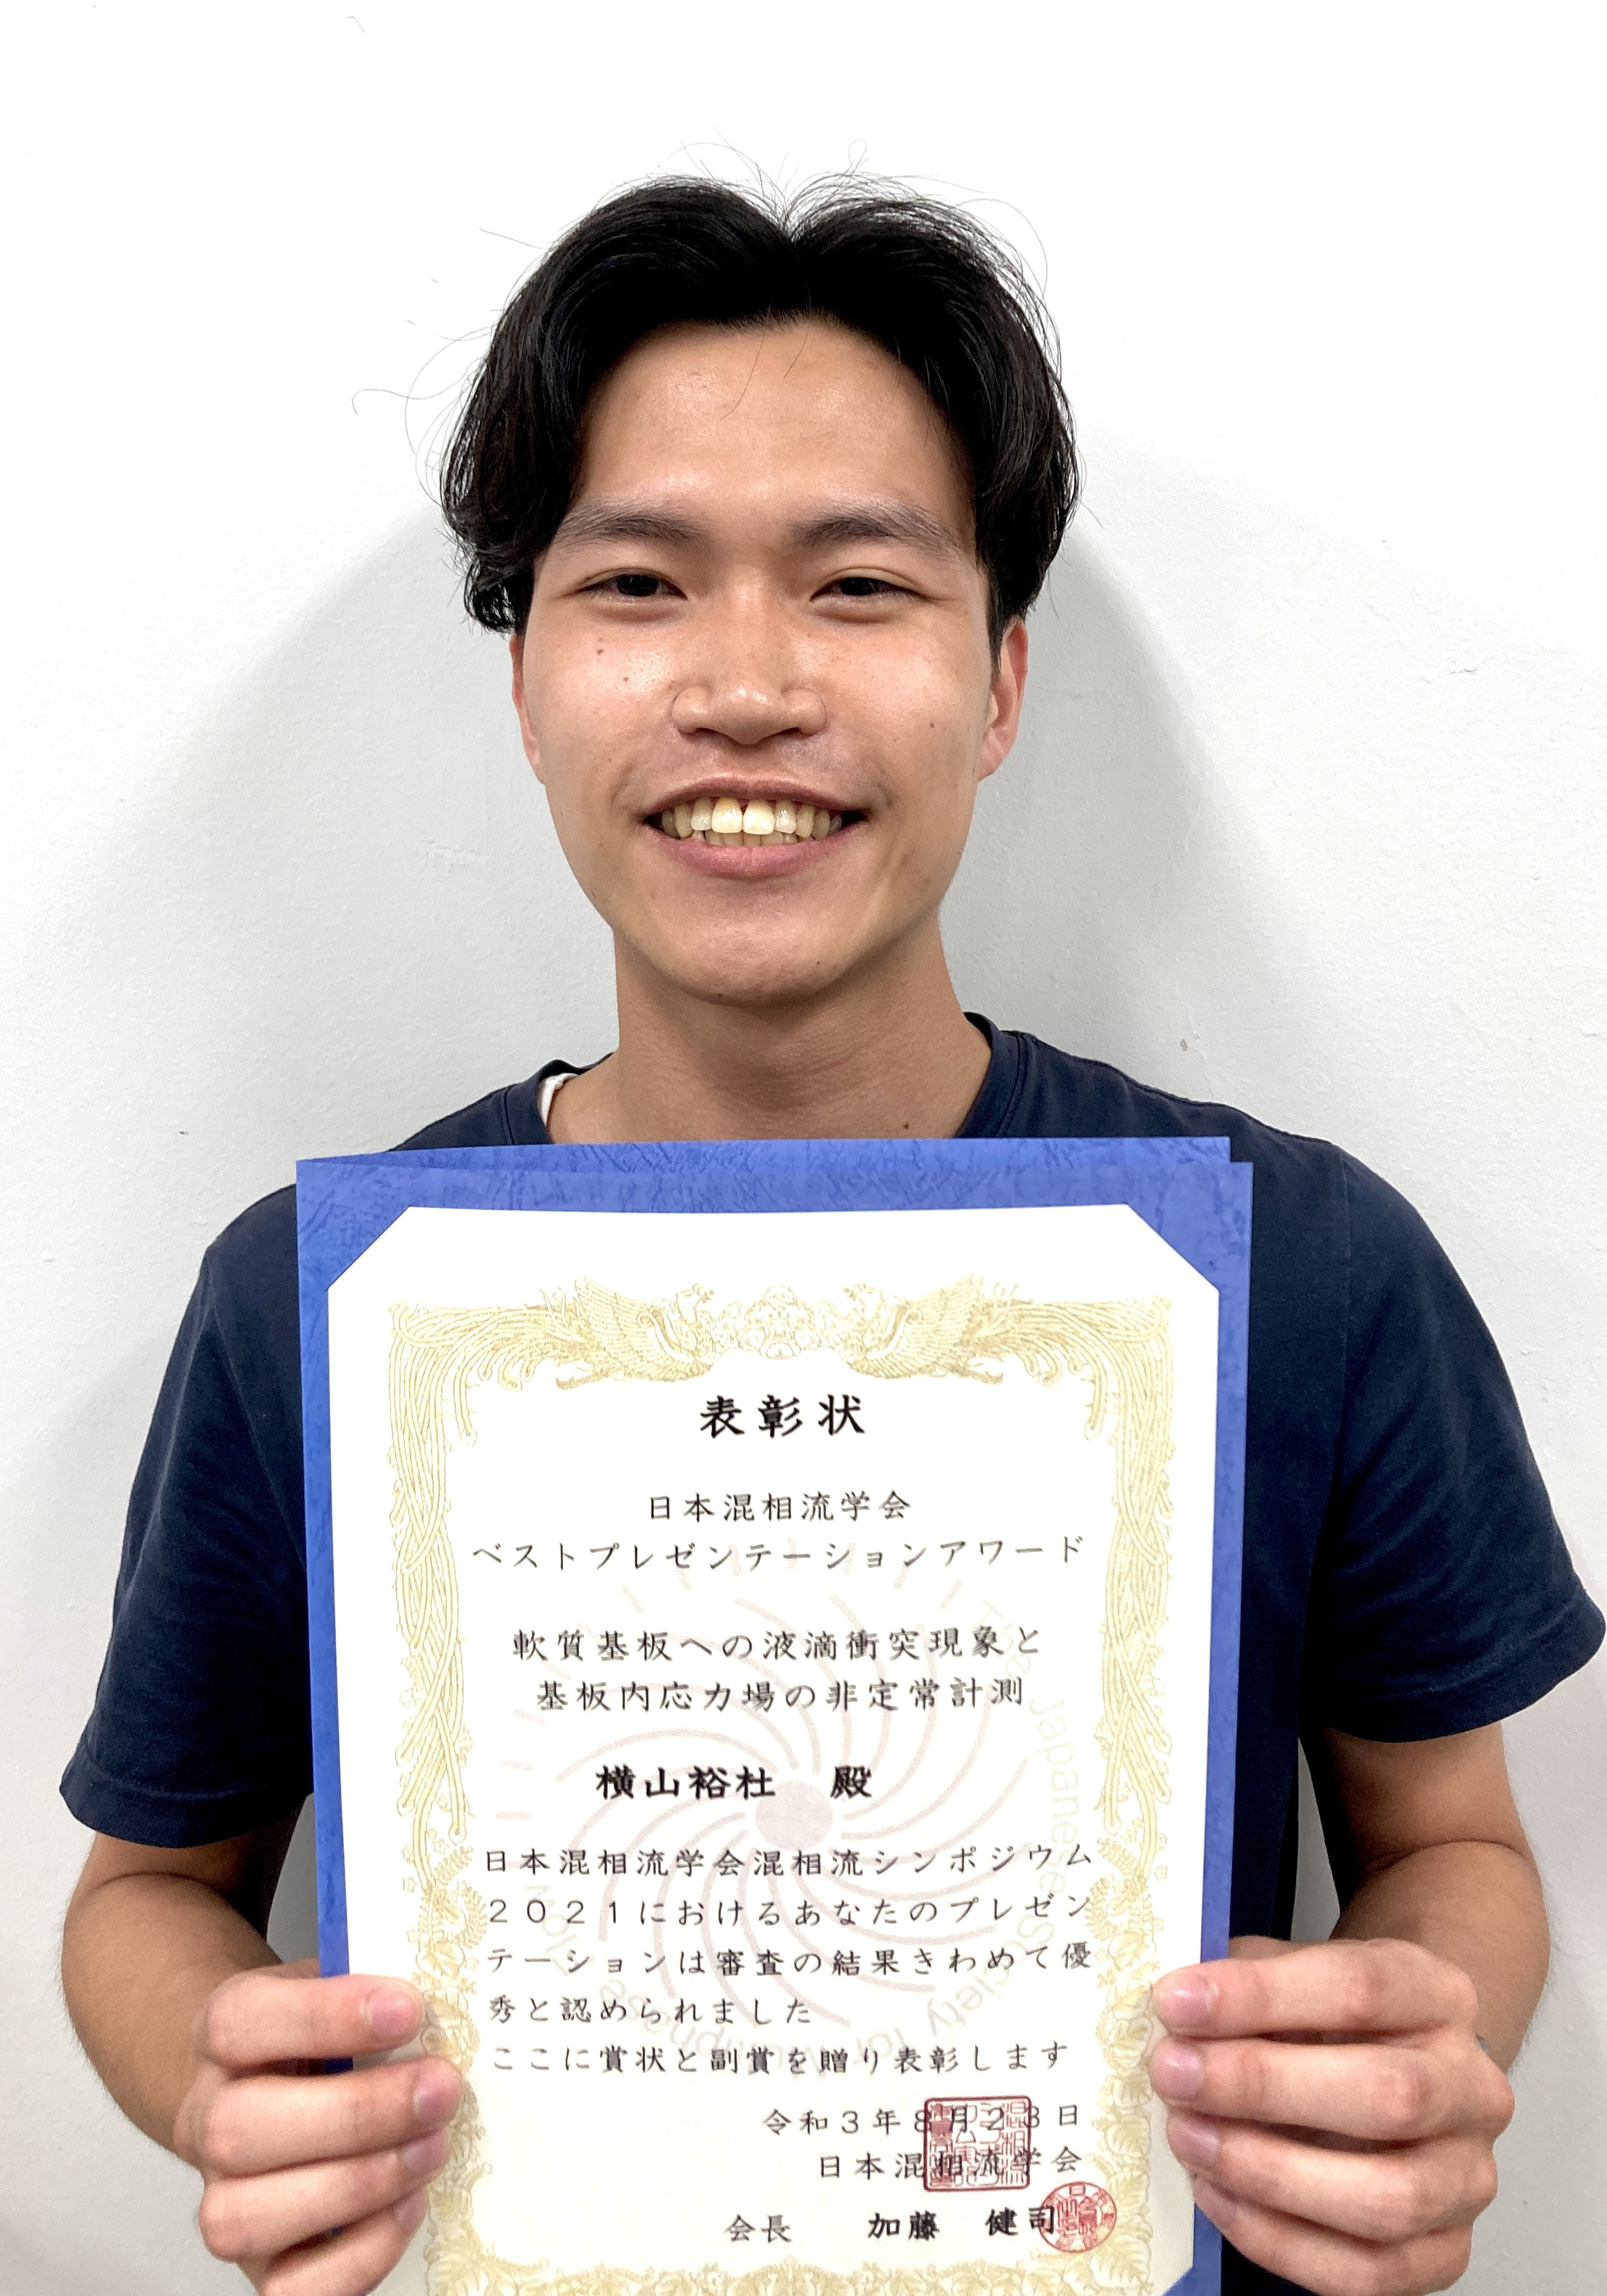 表彰状
日本混相流学会
ベストプレゼンテーションアワード
軟質基板への液滴衝突現象と
基板内応力場の非定常計測
横山裕杜 殿
日本混相流学会混相流シンポジウム
2021におけるあなたのプレゼン
テーションは審査の結果きわめて優
秀と認められました
ここに賞状と副賞を贈り表彰します
令和3年8月23日
日本混相流学会
会長 加藤 健司